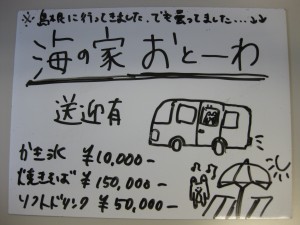 ※島根に行ってきました。でも曇ってました…↓↓
海の家 おとーわ
送迎有
かき氷 ¥10,000-
焼きそば ¥150,000-
ソフトドリンク ¥50,000-